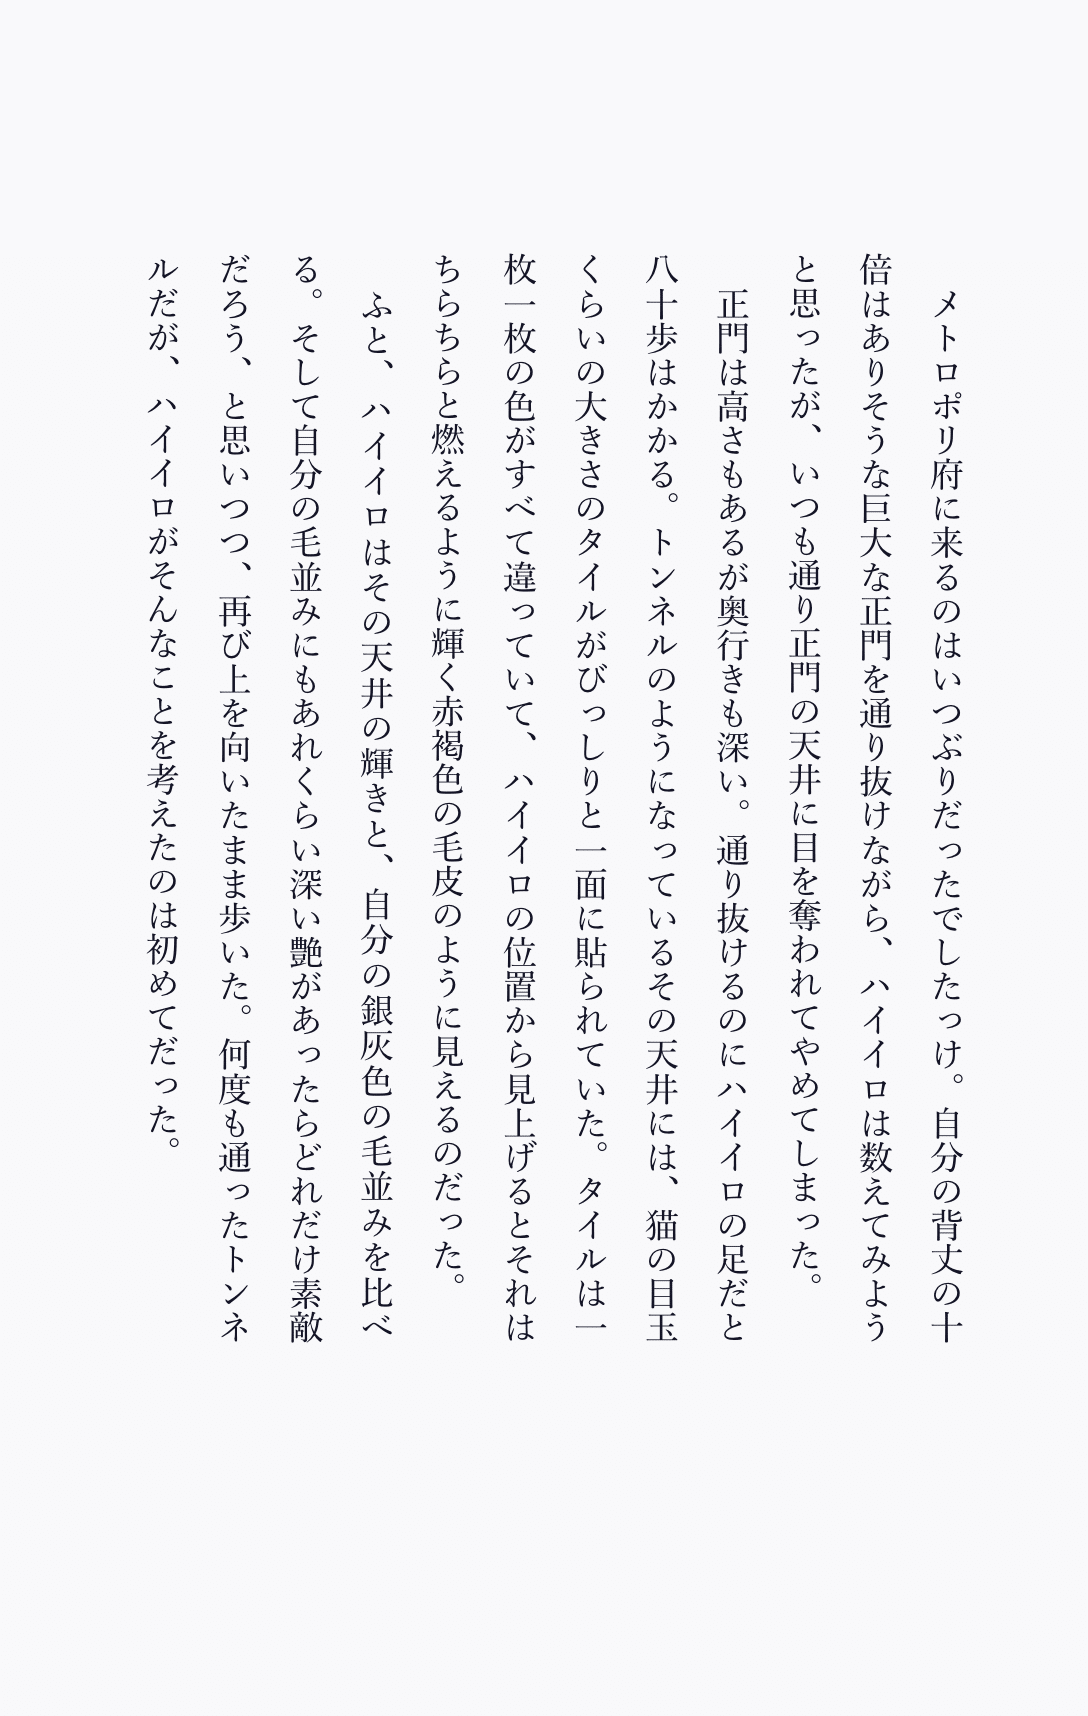 メトロポリ府に来るのはいつぶりだったでしたっけ。自分の背丈の十
倍はありそうな巨大な正門を通り抜けながら、ハイイロは数えてみよう
と思ったが、いつも通り正門の天井に目を奪われてやめてしまった。
正門は高さもあるが奥行きも深い。通り抜けるのにハイイロの足だと
八十歩はかかる。トンネルのようになっているその天井には、猫の目玉
くらいの大きさのタイルがびっしりと一面に貼られていた。タイルは一
枚一枚の色がすべて違っていて、ハイイロの位置から見上げるとそれは
ちらちらと燃えるように輝く赤褐色の毛皮のように見えるのだった。
ふと、ハイイロはその天井の輝きと、自分の銀灰色の毛並みを比べ
る。そして自分の毛並みにもあれくらい深い艶があったらどれだけ素敵
だろう、と思いつつ、再び上を向いたまま歩いた。何度も通ったトンネ
ルだが、ハイイロがそんなことを考えたのは初めてだった。